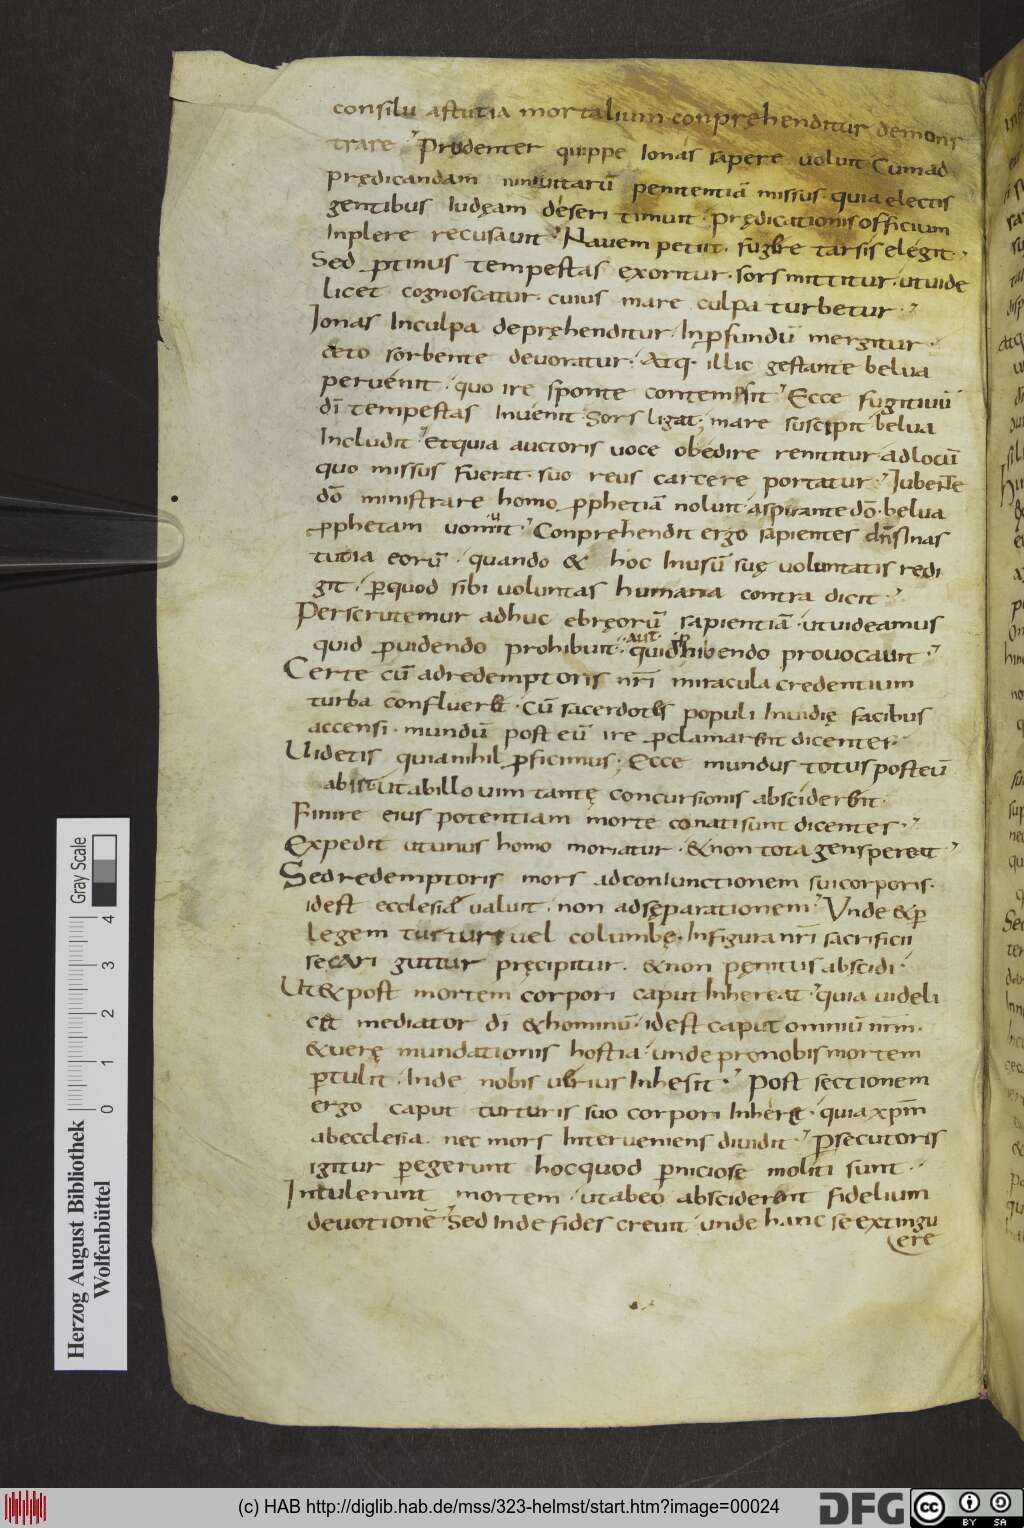 consilii astutia mortalium conpręhenditur demons
trare Prudenter quippe Ionas sapere uoluit Cum ad
prędicandam niniuitarū penitentiā missus quia electis
gentibus Iudęam deseri timuit prędicationis officium
Inplere recusauit Nauem petiit fugere tarsis elegit
Sed ꝓtinus tempestas exoritur sors mittitur ut uide
licet cognoscatur cuius mare culpa turbetur
Ionas Inculpa depręhenditur Inꝓfundū mergitur
ceto sorbente deuoratur Atq· illic gestante belua
peruenit quo ire sponte contempsit Ecce fugitiuū
dī tempestas Inuenit sors ligat mare suscipit belua
Includit et quia auctoris uoce obedire renititur ad locū
quo missus fuerat suo reus carcere portatur Iubente
dō ministrare homo ꝓphetiā noluit aspirante dō belua
ꝓphetam uomuit Conprehendit ergo sapientes dn̄s In as
tutia eorū quando & hoc Inusū suę uoluntatis redi
git ꝑquod sibi uoluntas humana contra dicit
Perscrutemur adhuc ebręorū sapientiā ut uideamus
quid ꝓuidendo prohibuit aut quid ꝓhibendo prouocauit
Certe cū ad redemptoris nr̄i miracula credentium
turba conflueret Cū sacerdotes populi Inuidię facibus
accensi mundū post eū ire ꝓclamarent dicentes
Uidetis quia nihil ꝓficimus Ecce mundus totus post eū
abiit ut ab illo uim tantę concursionis absciderent
Finire eius potentiam morte conati sunt dicentes
Expedit ut unus homo moriatur & non tota gens pereat
Sed redemptoris mors ad coniunctionem sui corporis
id est ecclesię ualuit non ad sęparationem Unde & ꝑ
legem turtur uel columbę In figura nr̄i sacrificii
secari guttur pręcipitur & non pęnitus abscidi
Ut & post mortem corpori caput Inhereat quia uideli
cet mediator dī & hominū id est caput omniū nr̄m
& uerę mundationis hostia unde pro nobis mortem
ꝑtulit Inde nobis uerius Inhesit Post sectionem
ergo caput turturis suo corpori Inheret quia xp̄m
ab ecclesia nec mors Interueniens diuidit Ꝑsecutoris
igitur ꝑegerunt hoc quod ꝑniciose moliti sunt
Intulerunt mortem ut ab eo absciderent fidelium
deuotionē Sed Inde fides creuit unde hanc se extingu
ere
Gray Scale
0 1 2 3 4
Herzog August Bibliothek
Wolfenbüttel
(c) HAB http://diglib.hab.de/mss/323-helmst/start.htm?image=00024
DFG
cc BY SA